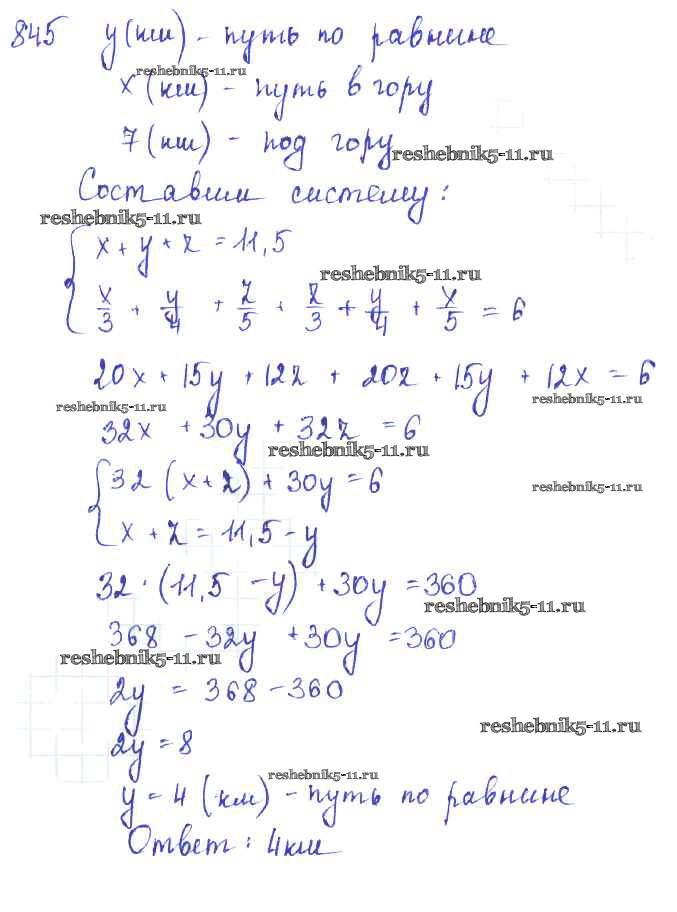 845 y(км) - путь по равнине
reshebnik5-11.ru
x (км) - путь в гору
7 (км) - под гору
reshebnik5-11.ru
Составим систему:
reshebnik5-11.ru
x + y + z = 11,5
reshebnik5-11.ru
x/3 + y/4 + z/5 + z/3 + y/4 + x/5 = 6
20x + 15y + 12z + 20z + 15y + 12x = 6
reshebnik5-11.ru reshebnik5-11.ru
32x + 30y + 32z = 6
reshebnik5-11.ru
32 (x + z) + 30y = 6
reshebnik5-11.ru
x + z = 11,5 - y
32 · (11,5 - y) + 30y = 360
reshebnik5-11.ru
368 - 32y + 30y = 360
reshebnik5-11.ru
2y = 368 - 360
reshebnik5-11.ru
2y = 8
reshebnik5-11.ru
y = 4 (км) - путь по равнине
Ответ: 4км